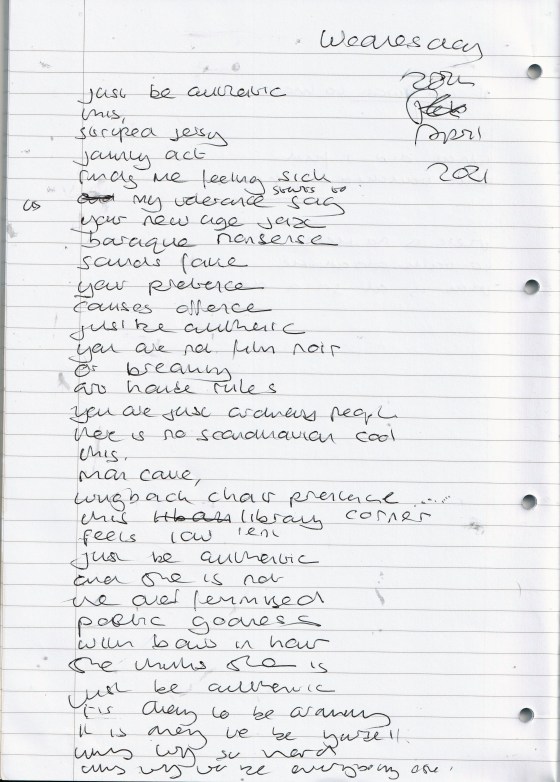 Wednesday
28th
April
2021
just be authentic
this,
striped jersey
jaunty act
finds me feeling sick
as my tolerance starts to sag
your new age jazz
baroque nonsense
sounds fake
your pretence
causes offence
just be authentic
you are not film noir
or breaking
any house rules
you are just ordinary people
there is no scandinavian cool
this,
man cave,
wingback chair pretence ....
this library corner
feels low rent
just be authentic
and she is not
the over feminised
poetic godness
with bows in hair
she thinks she is
just be authentic
it is okay to be ordinary
it is okay to be yourself
why try so hard
why try to be everybody else.